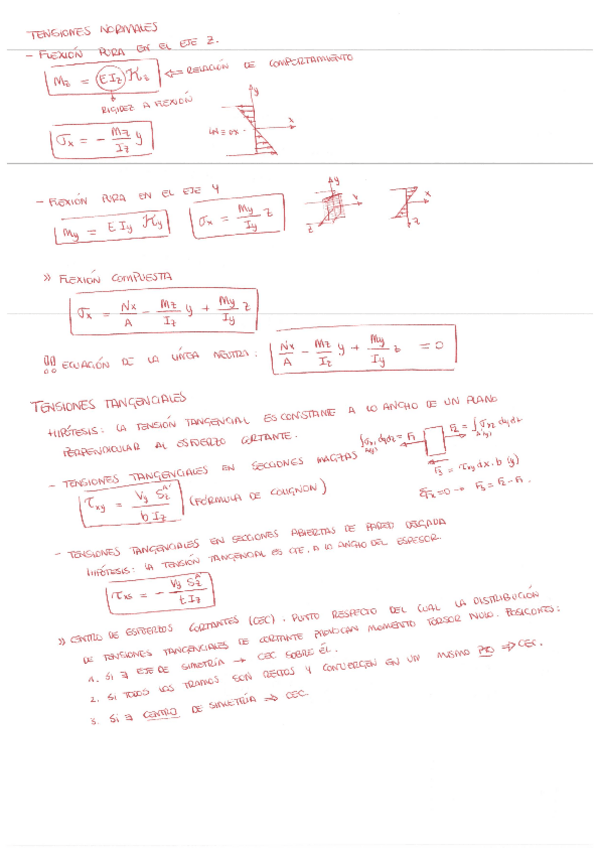 TENSIONES NORMALES
- FLEXIÓN PURA EN EL EJE Z.
Mz = (E Iz) Kz ⇐ RELACIÓN DE COMPORTAMIENTO
RIGIDEZ A FLEXIÓN
σx = - Mz/Iz y
y
x
- FLEXIÓN PURA EN EL EJE Y
My = E Iy Ky
σx = My/Iy z
y
x
z
x
z
» FLEXIÓN COMPUESTA
σx = Nx/A - Mz/Iz y + My/Iy z
!! ECUACIÓN DE LA LÍNEA NEUTRA: Nx/A - Mz/Iz y + My/Iy z = 0
TENSIONES TANGENCIALES
HIPÓTESIS: LA TENSIÓN TANGENCIAL ES CONSTANTE A LO ANCHO DE UN PLANO
PERPENDICULAR AL ESFUERZO CORTANTE.
- TENSIONES TANGENCIALES EN SECCIONES MACIZAS
τxy = Vy Sz^A'/b Iz (FÓRMULA DE COLIGNON)
F3 = τxy dx · b (y)
ΣFx = 0 → F3 = F2 - F1.
- TENSIONES TANGENCIALES EN SECCIONES ABIERTAS DE PARED DELGADA
HIPÓTESIS: LA TENSIÓN TANGENCIAL ES CTE, A LO ANCHO DEL ESPESOR.
τxs = - Vy Sz^A/t Iz
» CENTRO DE ESFUERZOS CORTANTES (CEC). PUNTO RESPECTO DEL CUAL LA DISTRIBUCIÓN
DE TENSIONES TANGENCIALES DE CORTANTE PROVOCAN MOMENTO TORSOR NULO. POSICIONES:
1. SI ∃ EJE DE SIMETRÍA → CEC SOBRE ÉL.
2. SI TODOS LOS TRAMOS SON RECTOS Y CONVERGEN EN UN MISMO PTO ⇒ CEC.
3. SI ∃ CENTRO DE SIMETRÍA ⇒ CEC